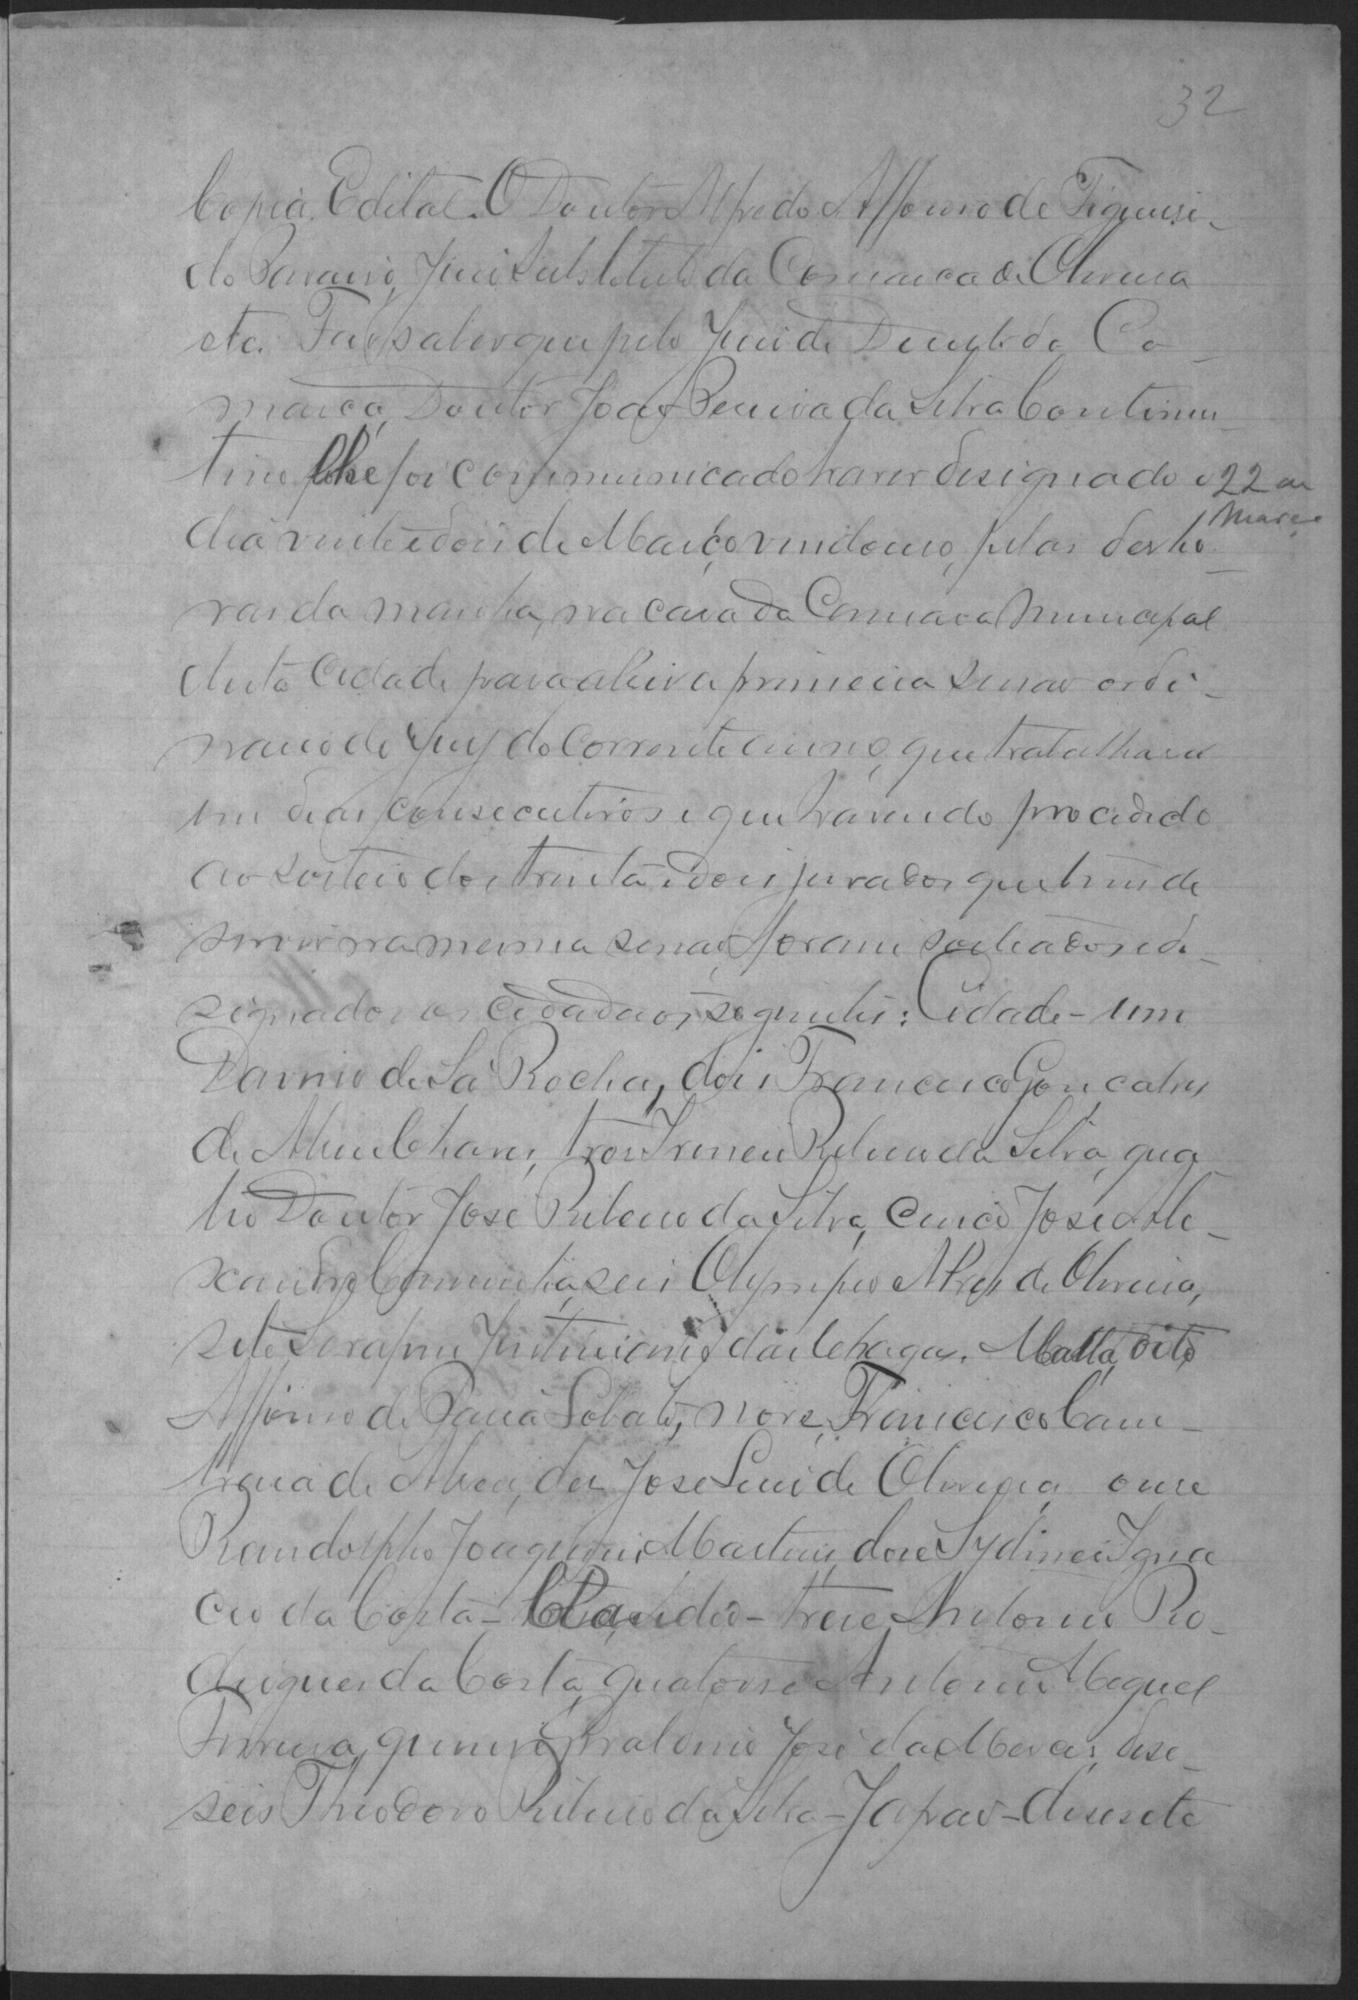 32
Copia. Edital. O Doutor Alfredo Affonso de Figueire-
do Paraiso, Juiz Substituto da Comarca de Oliveira
etc. Faz saber que pelo Juiz de Direito da Co-
marca, Doutor João Pereira da Silva Continen-
tino lhe foi communicado haver designado o
22 de
Março
dia vinte e dois de Março vindouro, pelas dez ho-
ras da manhã, na casa da Camara Municipal
desta Cidade para abrir a primeira sessão ordi-
naria de Jury do corrente anno, que trabalhará
em dias consecutivos e que havendo procedido
ao sorteio dos trinta e dois jurados que têm de
servir na mesma sessão, foram sorteados e de-
signados os cidadãos seguintes: Cidade - um
de Sá Rocha, dois Francisco Gonçalves
de Chaves, tres Irineu Ribeiro da Silva, qua-
tro Doutor José Ribeiro da Silva, cinco José Ale-
xandre, seis Olympio Alves de Oliveira,
sete Serafim Justiniano das Chagas. Matta, oito
Affonso de Paiva Lobato, nove, Francisco Cam-
de Abreu, dez José Luiz de Oliveira, onze
Randolpho Joaquim Martins, doze Sydinei Igna-
cio da Costa - Claudio - treze Antonio Ro-
drigues da Costa, quatorze Antonio Miguel
Ferreira, quinze José das Mercês, deze-
seis Theodoro Ribeiro da Silva - Japão - desesete